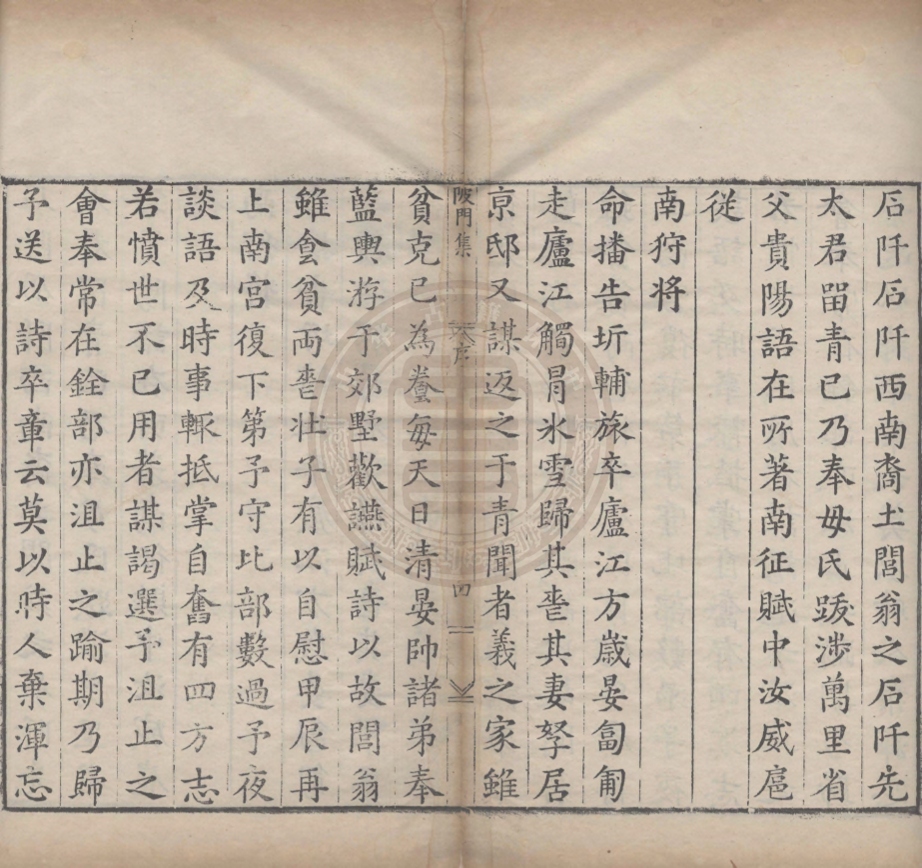 石阡石阡西南裔土閭翁之石阡先
太君畱青已乃奉母氏跋涉萬里省
父貴陽語在所著南征賦中汝威扈
從
南狩將
命播告圻輔旅卒廬江方歲晏匍匐
走廬江觸冐氷雪歸其喪其妻孥居
京邸又謀返之于青聞者義之家雖
陂門集 序 四
貧克已為養每天日清晏帥諸弟奉
藍輿游于郊墅歡讌賦詩以故閭翁
雖食貧兩喪壯子有以自慰甲辰再
上南宮復下第予守比部數過予夜
談語及時事輒抵掌自奮有四方志
若憤世不已用者謀謁選予沮止之
會奉常在銓部亦沮止之踰期乃歸
予送以詩卒章云莫以時人棄渾忘